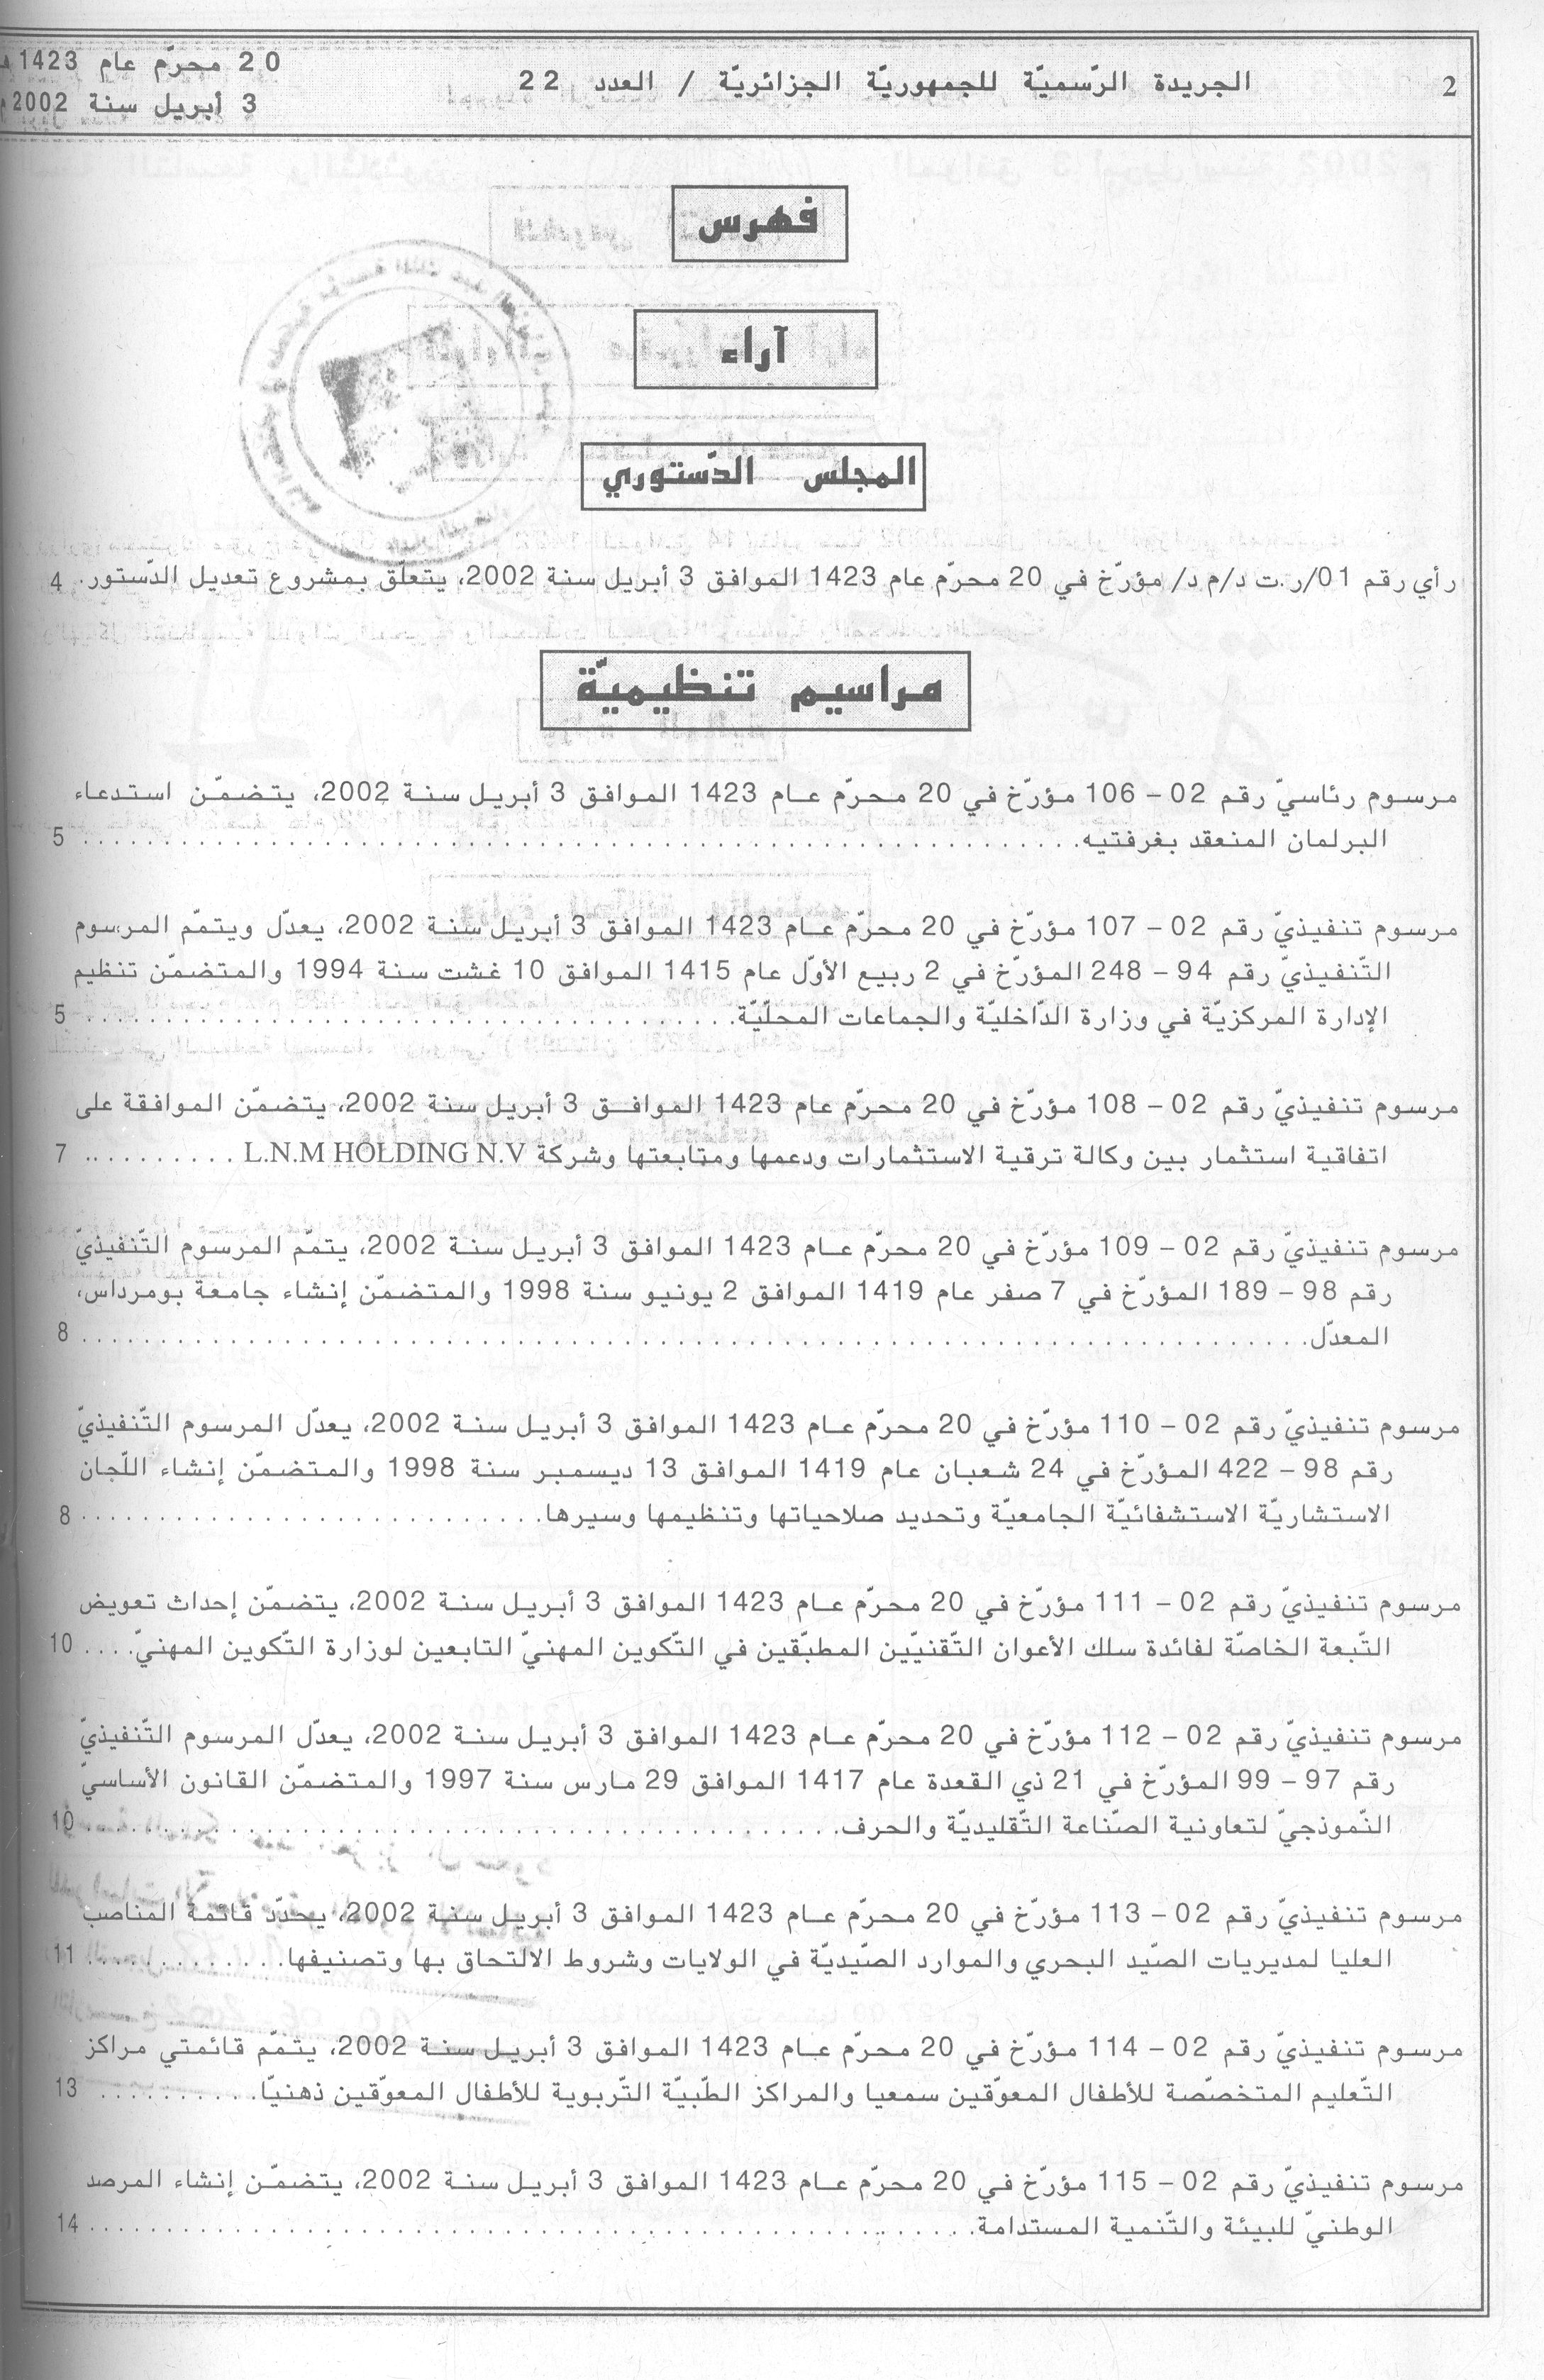 2
الجريدة الرّسميّة للجمهوريّة الجزائريّة / العدد 22
20 محرّم عام 1423 هـ
3 أبريل سنة 2002 م
فهرس
آراء
المجلس الدّستوري
رأي رقم 01/ر.ت د/م د/ مؤرّخ في 20 محرّم عام 1423 الموافق 3 أبريل سنة 2002، يتعلّق بمشروع تعديل الدّستور. 4
مراسيم تنظيميّة
مرسوم رئاسيّ رقم 02 – 106 مؤرّخ في 20 محرّم عـام 1423 الموافق 3 أبريـل سنـة 2002، يـتضمّـن استدعاء
البرلمان المنعقد بغرفتيه. . . . . . . . . . . . . . . . . . . . . . . . 5
مرسوم تنفيذيّ رقم 02 – 107 مؤرّخ في 20 محرّم عـام 1423 الموافق 3 أبريـل سنـة 2002، يعدّل ويتمّم المرسوم
التّنفيذيّ رقم 94 – 248 المؤرّخ في 2 ربيع الأوّل عام 1415 الموافق 10 غشت سنة 1994 والمتضمّن تنظيم
الإدارة المركزيّة في وزارة الدّاخليّة والجماعات المحلّيّة. . . . . . . . . . . . . . . . 5
مرسوم تنفيذيّ رقم 02 – 108 مؤرّخ في 20 محرّم عام 1423 الموافـق 3 أبريل سنة 2002، يتضمّن الموافقة على
اتفاقية استثمار بين وكالة ترقية الاستثمارات ودعمها ومتابعتها وشركة L.N.M HOLDING N.V . . . . . . . . . .. 7
مرسوم تنفيذيّ رقم 02 – 109 مؤرّخ في 20 محرّم عـام 1423 الموافق 3 أبريـل سنـة 2002، يتمّم المرسوم التّنفيذيّ
رقم 98 – 189 المؤرّخ في 7 صفر عام 1419 الموافق 2 يونيو سنة 1998 والمتضمّن إنشاء جامعة بومرداس،
المعدّل. . . . . . . . . . . . . . . . . . . . . . . . . . . . 8
مرسوم تنفيذيّ رقم 02 – 110 مؤرّخ في 20 محرّم عـام 1423 الموافق 3 أبريـل سنـة 2002، يعدّل المرسوم التّنفيذيّ
رقم 98 – 422 المؤرّخ في 24 شعبان عام 1419 الموافق 13 ديسمبر سنة 1998 والمتضمّن إنشاء اللّجان
الاستشاريّة الاستشفائيّة الجامعيّة وتحديد صلاحياتها وتنظيمها وسيرها. . . . . . . . . . . . . 8
مرسوم تنفيذيّ رقم 02 – 111 مؤرّخ في 20 محرّم عـام 1423 الموافق 3 أبريـل سنـة 2002، يتضمّن إحداث تعويض
التّبعة الخاصّة لفائدة سلك الأعوان التّقنيّين المطبّقين في التّكوين المهنيّ التابعين لوزارة التّكوين المهنيّ. . . . 10
مرسوم تنفيذيّ رقم 02 – 112 مؤرّخ في 20 محرّم عـام 1423 الموافق 3 أبريـل سنـة 2002، يعدّل المرسوم التّنفيذيّ
رقم 97 – 99 المؤرّخ في 21 ذي القعدة عام 1417 الموافق 29 مارس سنة 1997 والمتضمّن القانون الأساسيّ
النّموذجيّ لتعاونية الصّناعة التّقليديّة والحرف. . . . . . . . . . . . . . . . . 10
مرسوم تنفيذيّ رقم 02 – 113 مؤرّخ في 20 محرّم عـام 1423 الموافق 3 أبريـل سنـة 2002، يحدّد قائمة المناصب
العليا لمديريات الصّيد البحري والموارد الصّيديّة في الولايات وشروط الالتحاق بها وتصنيفها. . . . . . . . . . 11
مرسوم تنفيذيّ رقم 02 – 114 مؤرّخ في 20 محرّم عـام 1423 الموافق 3 أبريـل سنـة 2002، يتمّم قائمتي مراكز
التّعليم المتخصّصة للأطفال المعوّقين سمعيا والمراكز الطّبيّة التّربوية للأطفال المعوّقين ذهنيّا. . . . . . . . . 13
مرسوم تنفيذيّ رقم 02 – 115 مؤرّخ في 20 محرّم عـام 1423 الموافق 3 أبريـل سنـة 2002، يتضمّـن إنشاء المرصد
الوطنيّ للبيئة والتّنمية المستدامة. . . . . . . . . . . . . . . . . . . . 14